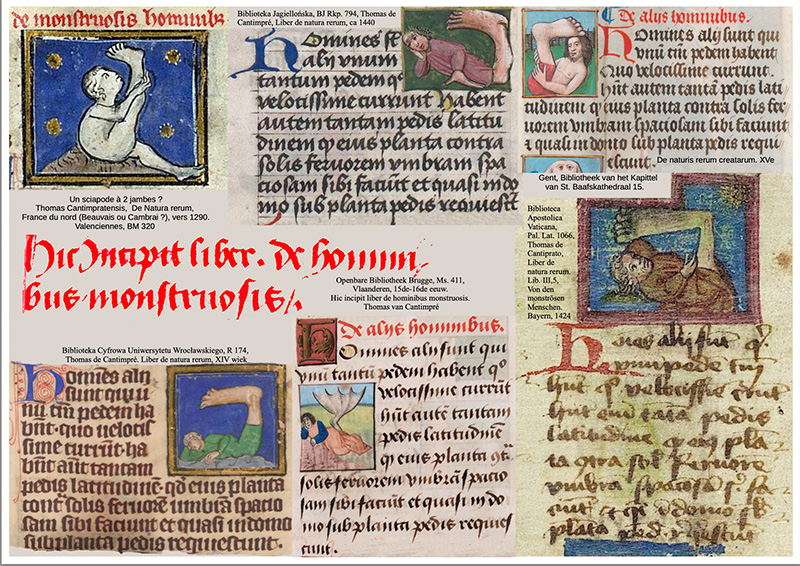 de monstruosis hominib
Un sciapode à 2 jambes ?
Thomas Cantimpratensis, De Natura rerum,
France du nord (Beauvais ou Cambrai ?), vers 1290.
Valenciennes, BM 320
Biblioteka Jagiellońska, BJ Rkp. 794, Thomas de
Cantimpré, Liber de natura rerum, ca 1440
Homines st
alij vnum
tantum pedem qͥ
velocissime currunt habent
autem tantam pedis latitu
dinem qͥ eius planta contra
solis feruorem vmbram spa
ciosam sibi faciūt et quasi in do
mo sub planta pedis requiescūt
De alijs hominibus.
Homines alij sunt qui
vnū tm̄ pedem habent
Quo velocissime currunt.
hn̄t autem tantā pedis lati
tudinem qͥ eius planta contra solis fer
uorem vmbram spaciosam sibi faciunt
et quasi in domo sub planta pedis requi
escunt.
De naturis rerum creatarum. XVe
Gent, Bibliotheek van het Kapittel
van St. Baafskathedraal 15.
Hic Incipit liber. de homini
bus monstruosis.
Openbare Bibliotheek Brugge, Ms. 411,
Vlaanderen, 15de-16de eeuw.
Hic incipit liber de hominibus monstruosis.
Thomas van Cantimpré
Biblioteca
Apostolica
Vaticana,
Pal. Lat. 1066,
Thomas de
Cantiprato,
Liber de
natura rerum.
Lib. III,5,
Von den
monströsen
Menschen.
Bayern, 1424
Biblioteka Cyfrowa Uniwersytetu Wrocławskiego, R 174,
Thomas de Cantimpré. Liber de natura rerum, XIV wiek
Homines alij
sunt qui u
nū tm̄ pedem ha
bnt. quo uelocis
sime currunt. ha
bn̄t aut tantam
pedis latitudinē. qd eius planta
contͣ solis feruorē umbrā spacio
sam sibi faciunt et quasi in domo
sub planta pedis requiescunt.
De alijs hominibus.
Omines alij sunt qui
vnū tantū pedem habent qͦ
velocissime currūt
hn̄t autē tantam
pedis latitudinē
qͥ eius planta 9tͣ
solis feruorem vmbrā spacio
sam sibi faciunt et quasi in do
mo sub planta pedis requies
cunt.
velocissie
pedis
latitudine